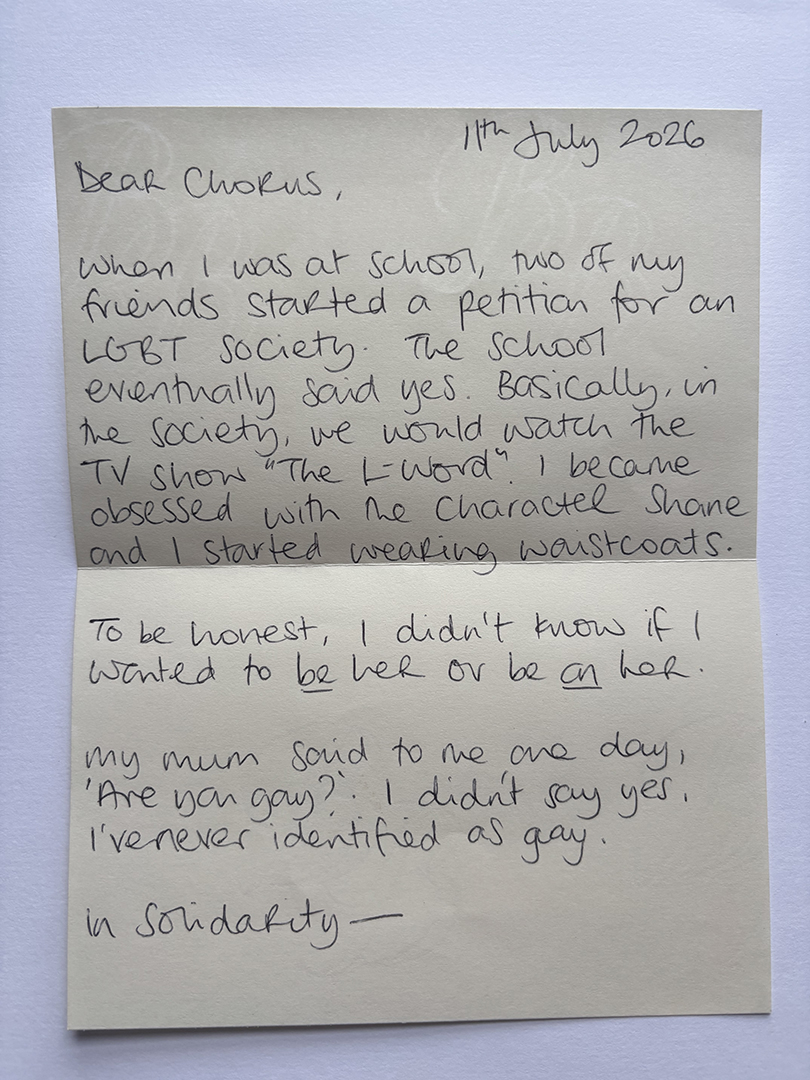 11th July 2026
Dear Chorus,
When I was at school, two of my
friends started a petition for an
LGBT society. The school
eventually said yes. Basically, in
the society, we would watch the
TV show "The L-Word". I became
obsessed with the character Shane
and I started wearing waistcoats.
To be honest, I didn't know if I
wanted to be her or be on her.
My mum said to me one day,
'Are you gay?'. I didn't say yes.
I've never identified as gay.
In solidarity —